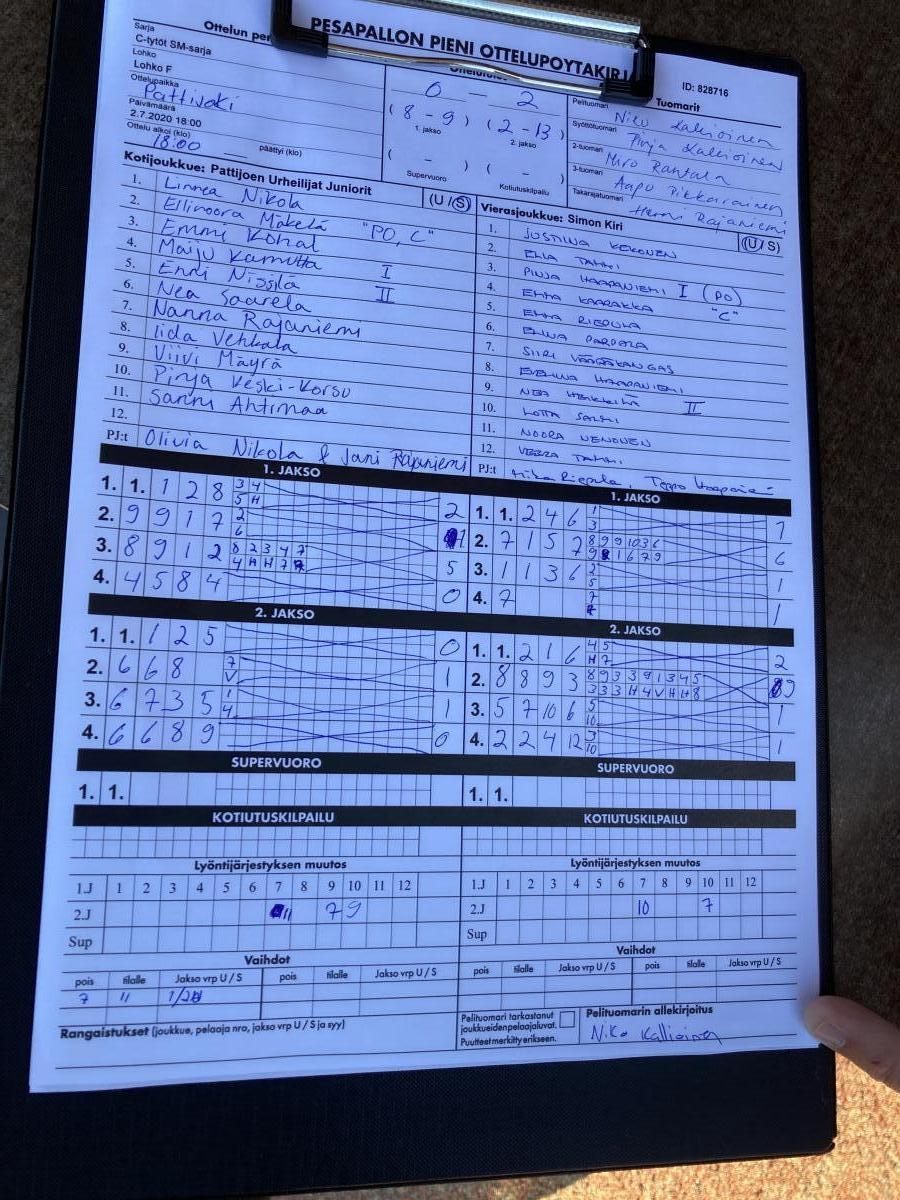 PESÄPALLON PIENI OTTELUPÖYTÄKIRJ
Ottelun per
Sarja
C-tytöt SM-sarja
Lohko
Lohko F
Ottelupaikka
Pattijoki
Päivämäärä
2.7.2020 18:00
Ottelu alkoi (klo)
18:00 päättyi (klo)
Ottelutulos
0 – 2
(8 - 9) (2 - 13)
1. jakso 2. jakso
( - ) ( - )
Supervuoro Kotiutuskilpailu
ID: 828716
Tuomarit
Pelituomari Niko Kallioinen
Syöttötuomari Pinja Kallioinen
2-tuomari Miro Rantala
3-tuomari Aapo Pikkarainen
Takarajatuomari Henni Rajaniemi
Kotijoukkue: Pattijoen Urheilijat Juniorit (U / S)
1. Linnea Nikola
2. Ellinoora Mäkelä "PO, C"
3. Emmi Kohal
4. Maiju Kamutta I
5. Enni Nissilä II
6. Nea Saarela
7. Nanna Rajaniemi
8. Iida Vehkala
9. Viivi Mäyrä
10. Pinja Keski-Korsu
11. Sanni Ahtimaa
12.
PJ:t Olivia Nikola & Jani Rajaniemi
Vierasjoukkue: Simon Kiri (U / S)
1. JUSTIINA KEKONEN
2. ELLA TAMMI
3. PINJA HAAPANIEMI I (PO)
4. EMMA KAARAKKA "C"
5. EMMA RIEPULA
6. PARPALA
7. SIIRI VÄÄRÄKANGAS
8. EVELIINA HAAPANIEMI
9. NEA HEIKKILÄ II
10. LOTTA SALMI
11. NOORA NENONEN
12. VEERA TAMMI
PJ:t Mika Riepula, Teppo
1. JAKSO
1. 1. 1 2 8 3 4 2
5 H
2. 9 9 1 7 2 1
6
3. 8 9 1 2 8 2 3 4 7 5
4 H H 7 7
4. 4 5 8 4 0
1. JAKSO
1. 1. 2 4 6 1 1
3
2. 7 1 5 7 8 9 9 10 3 6 6
9 8 1 6 7 9
3. 1 1 3 6 2 1
5
4. 7 7 1
2. JAKSO
1. 1. 1 2 5 0
2. 6 6 8 7 1
V
3. 6 7 3 5 1 1
4
4. 6 6 8 9 0
2. JAKSO
1. 1. 2 1 6 4 5 2
H 7
2. 8 8 9 3 8 9 3 3 9 1 3 4 5 9
3 3 3 H 4 V H H 8
3. 5 7 10 6 5 1
10
4. 2 2 4 12 3 1
10
SUPERVUORO
1. 1.
SUPERVUORO
1. 1.
KOTIUTUSKILPAILU
KOTIUTUSKILPAILU
Lyöntijärjestyksen muutos
1.J 1 2 3 4 5 6 7 8 9 10 11 12
2.J 11 7 9
Sup
Lyöntijärjestyksen muutos
1.J 1 2 3 4 5 6 7 8 9 10 11 12
2.J 10 7
Sup
Vaihdot
pois tilalle Jakso vrp U / S pois tilalle Jakso vrp U / S
7 11
Vaihdot
pois tilalle Jakso vrp U / S pois tilalle Jakso vrp U / S
Rangaistukset (joukkue, pelaaja nro, jakso vrp U / S ja syy)
Pelituomari tarkastanut
joukkueiden pelaajaluvat.
Puutteet merkitty erikseen.
Pelituomarin allekirjoitus
Niko Kallioinen